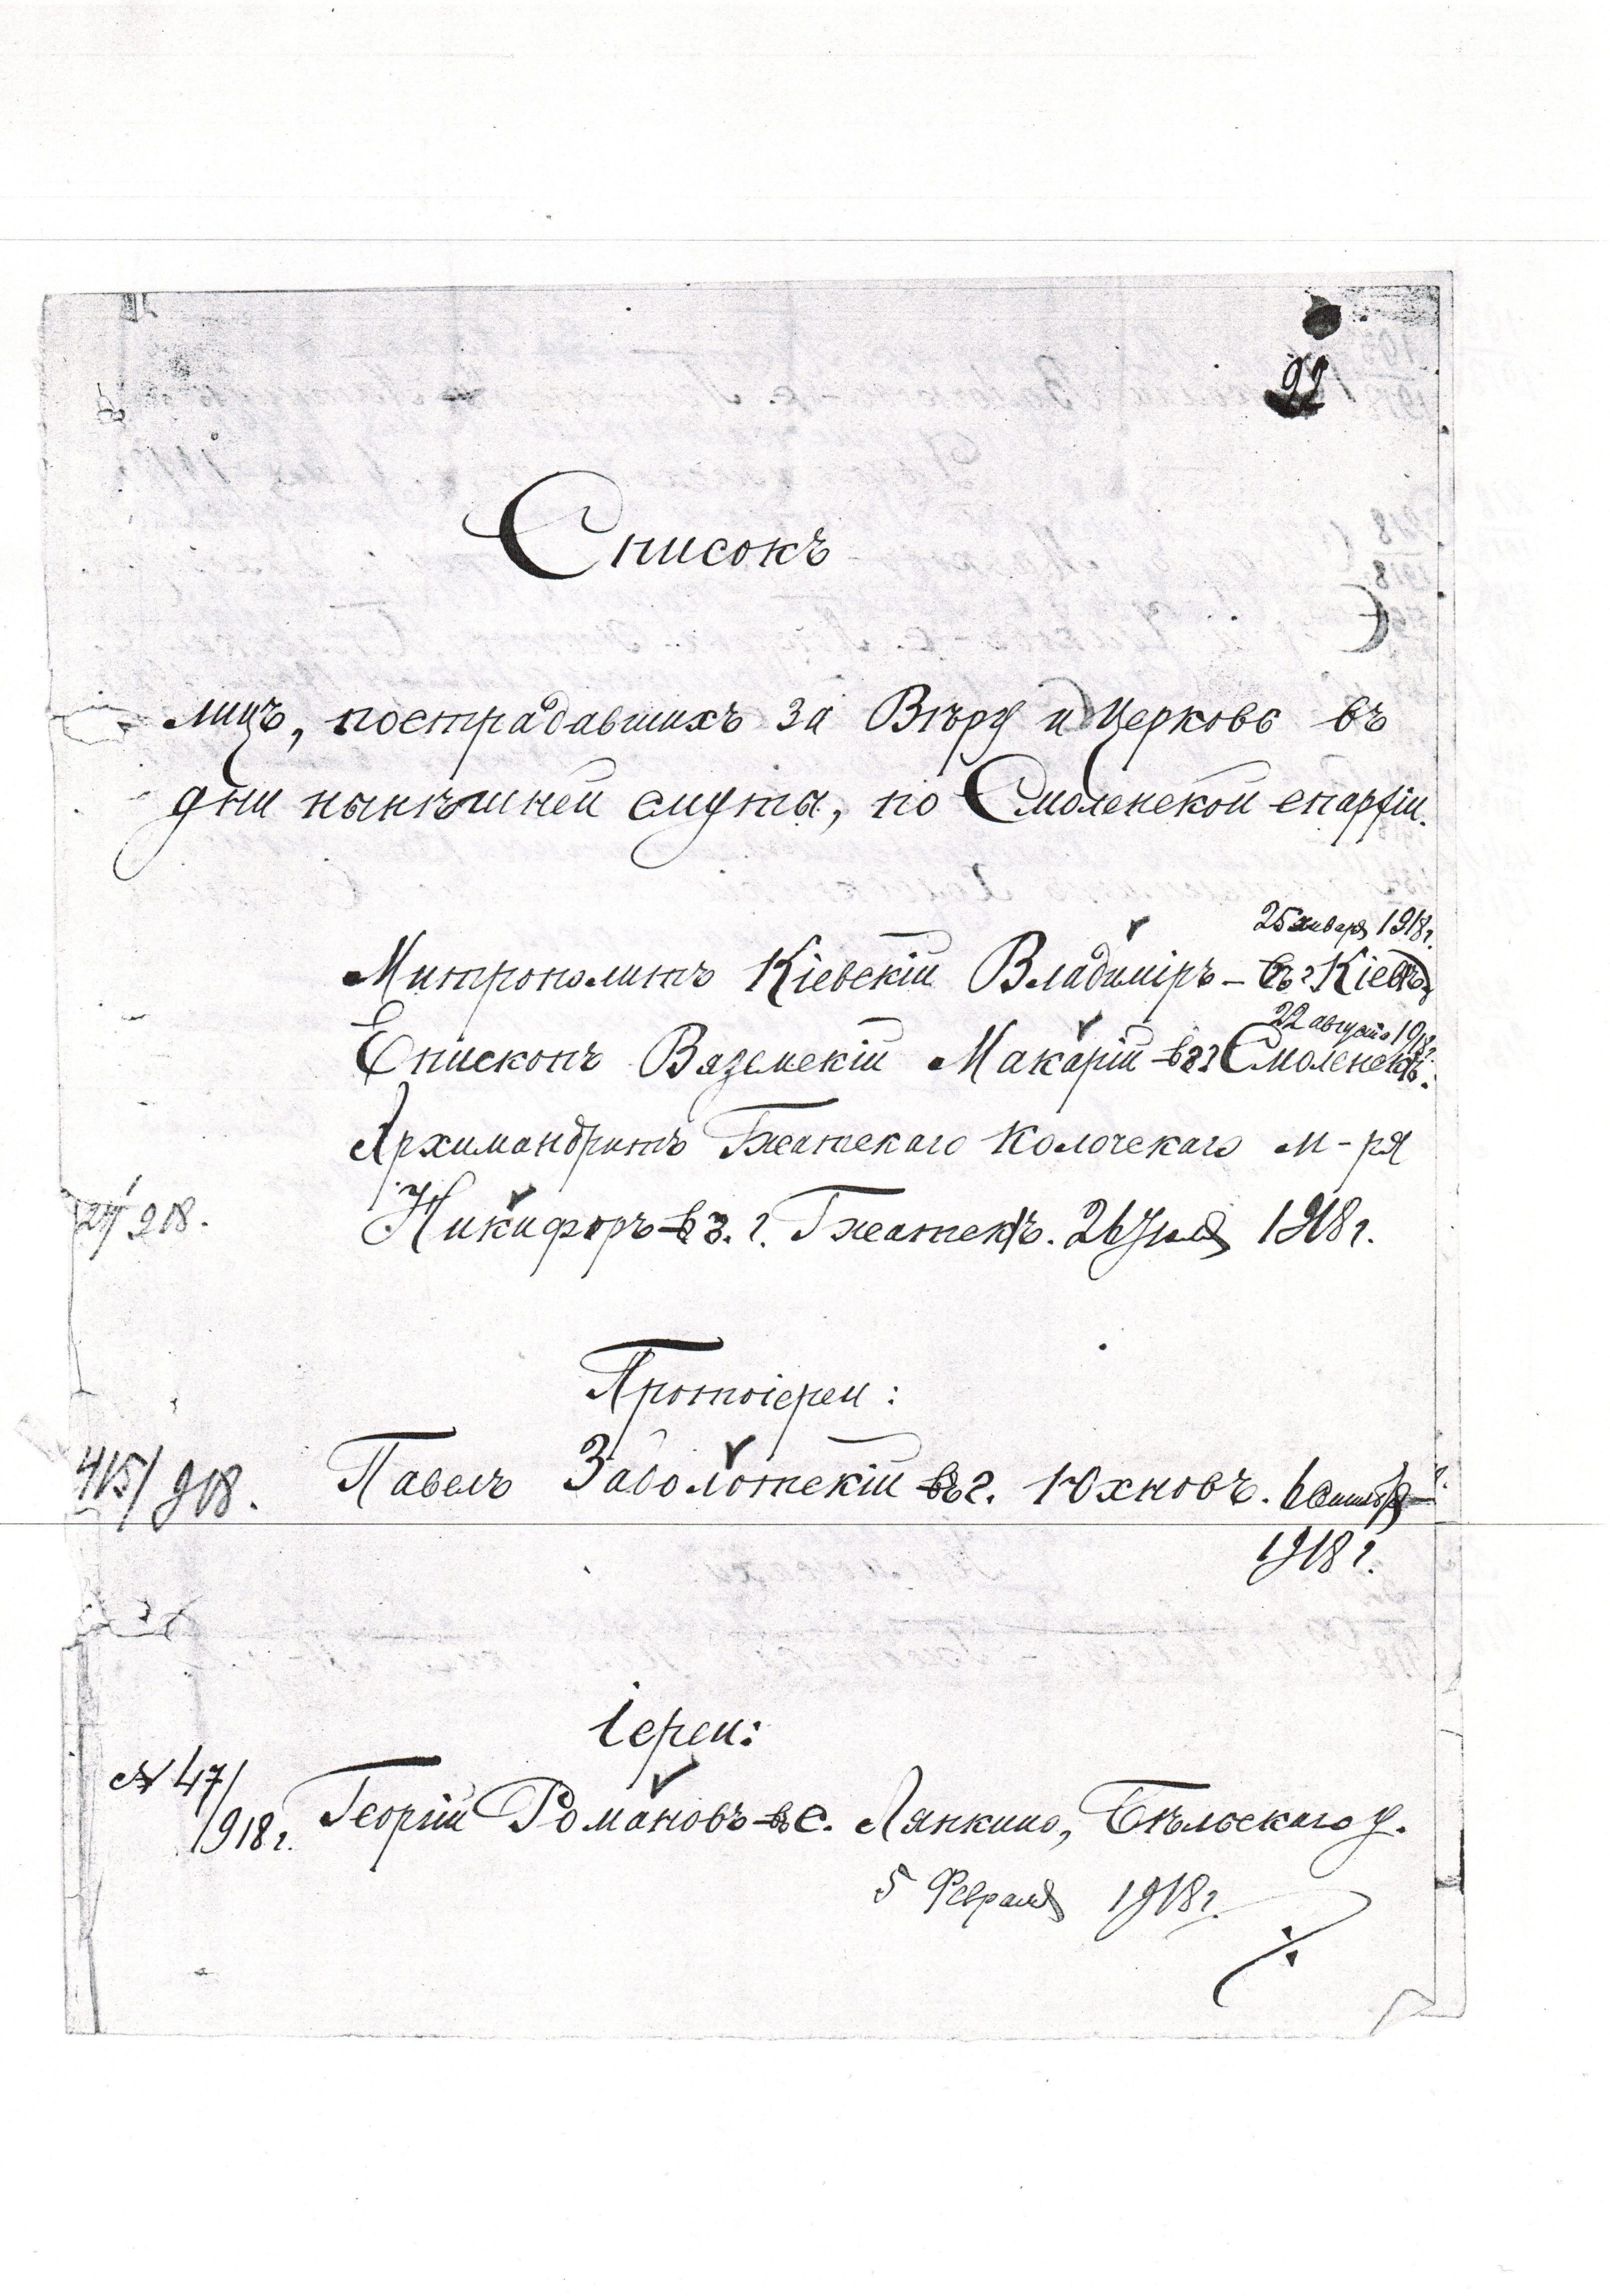 22
Списокъ
лицъ, пострадавшихъ за Вѣру и Церковь въ
дни нынѣшней смуты, по Смоленской епархіи.
25 января 1918 г.
Митрополитъ Кіевскій Владиміръ – въ г. Кіевѣ
22 августа 1918 г.
Епископъ Вяземскій Макарій – въ г. Смоленскѣ.
Архимандритъ Гжатскаго Колочскаго м-ря
Никифоръ – въ г. Гжатскѣ. 26 1918 г.
Протоіереи:
415/918. Павелъ Заболотскій – въ г. Юхновѣ.
1918 г.
Іереи:
№ 47/
1918 г. Георгій Романовъ – въ с. Лянкино, Бѣльскаго у.
5 Февраля 1918 г.